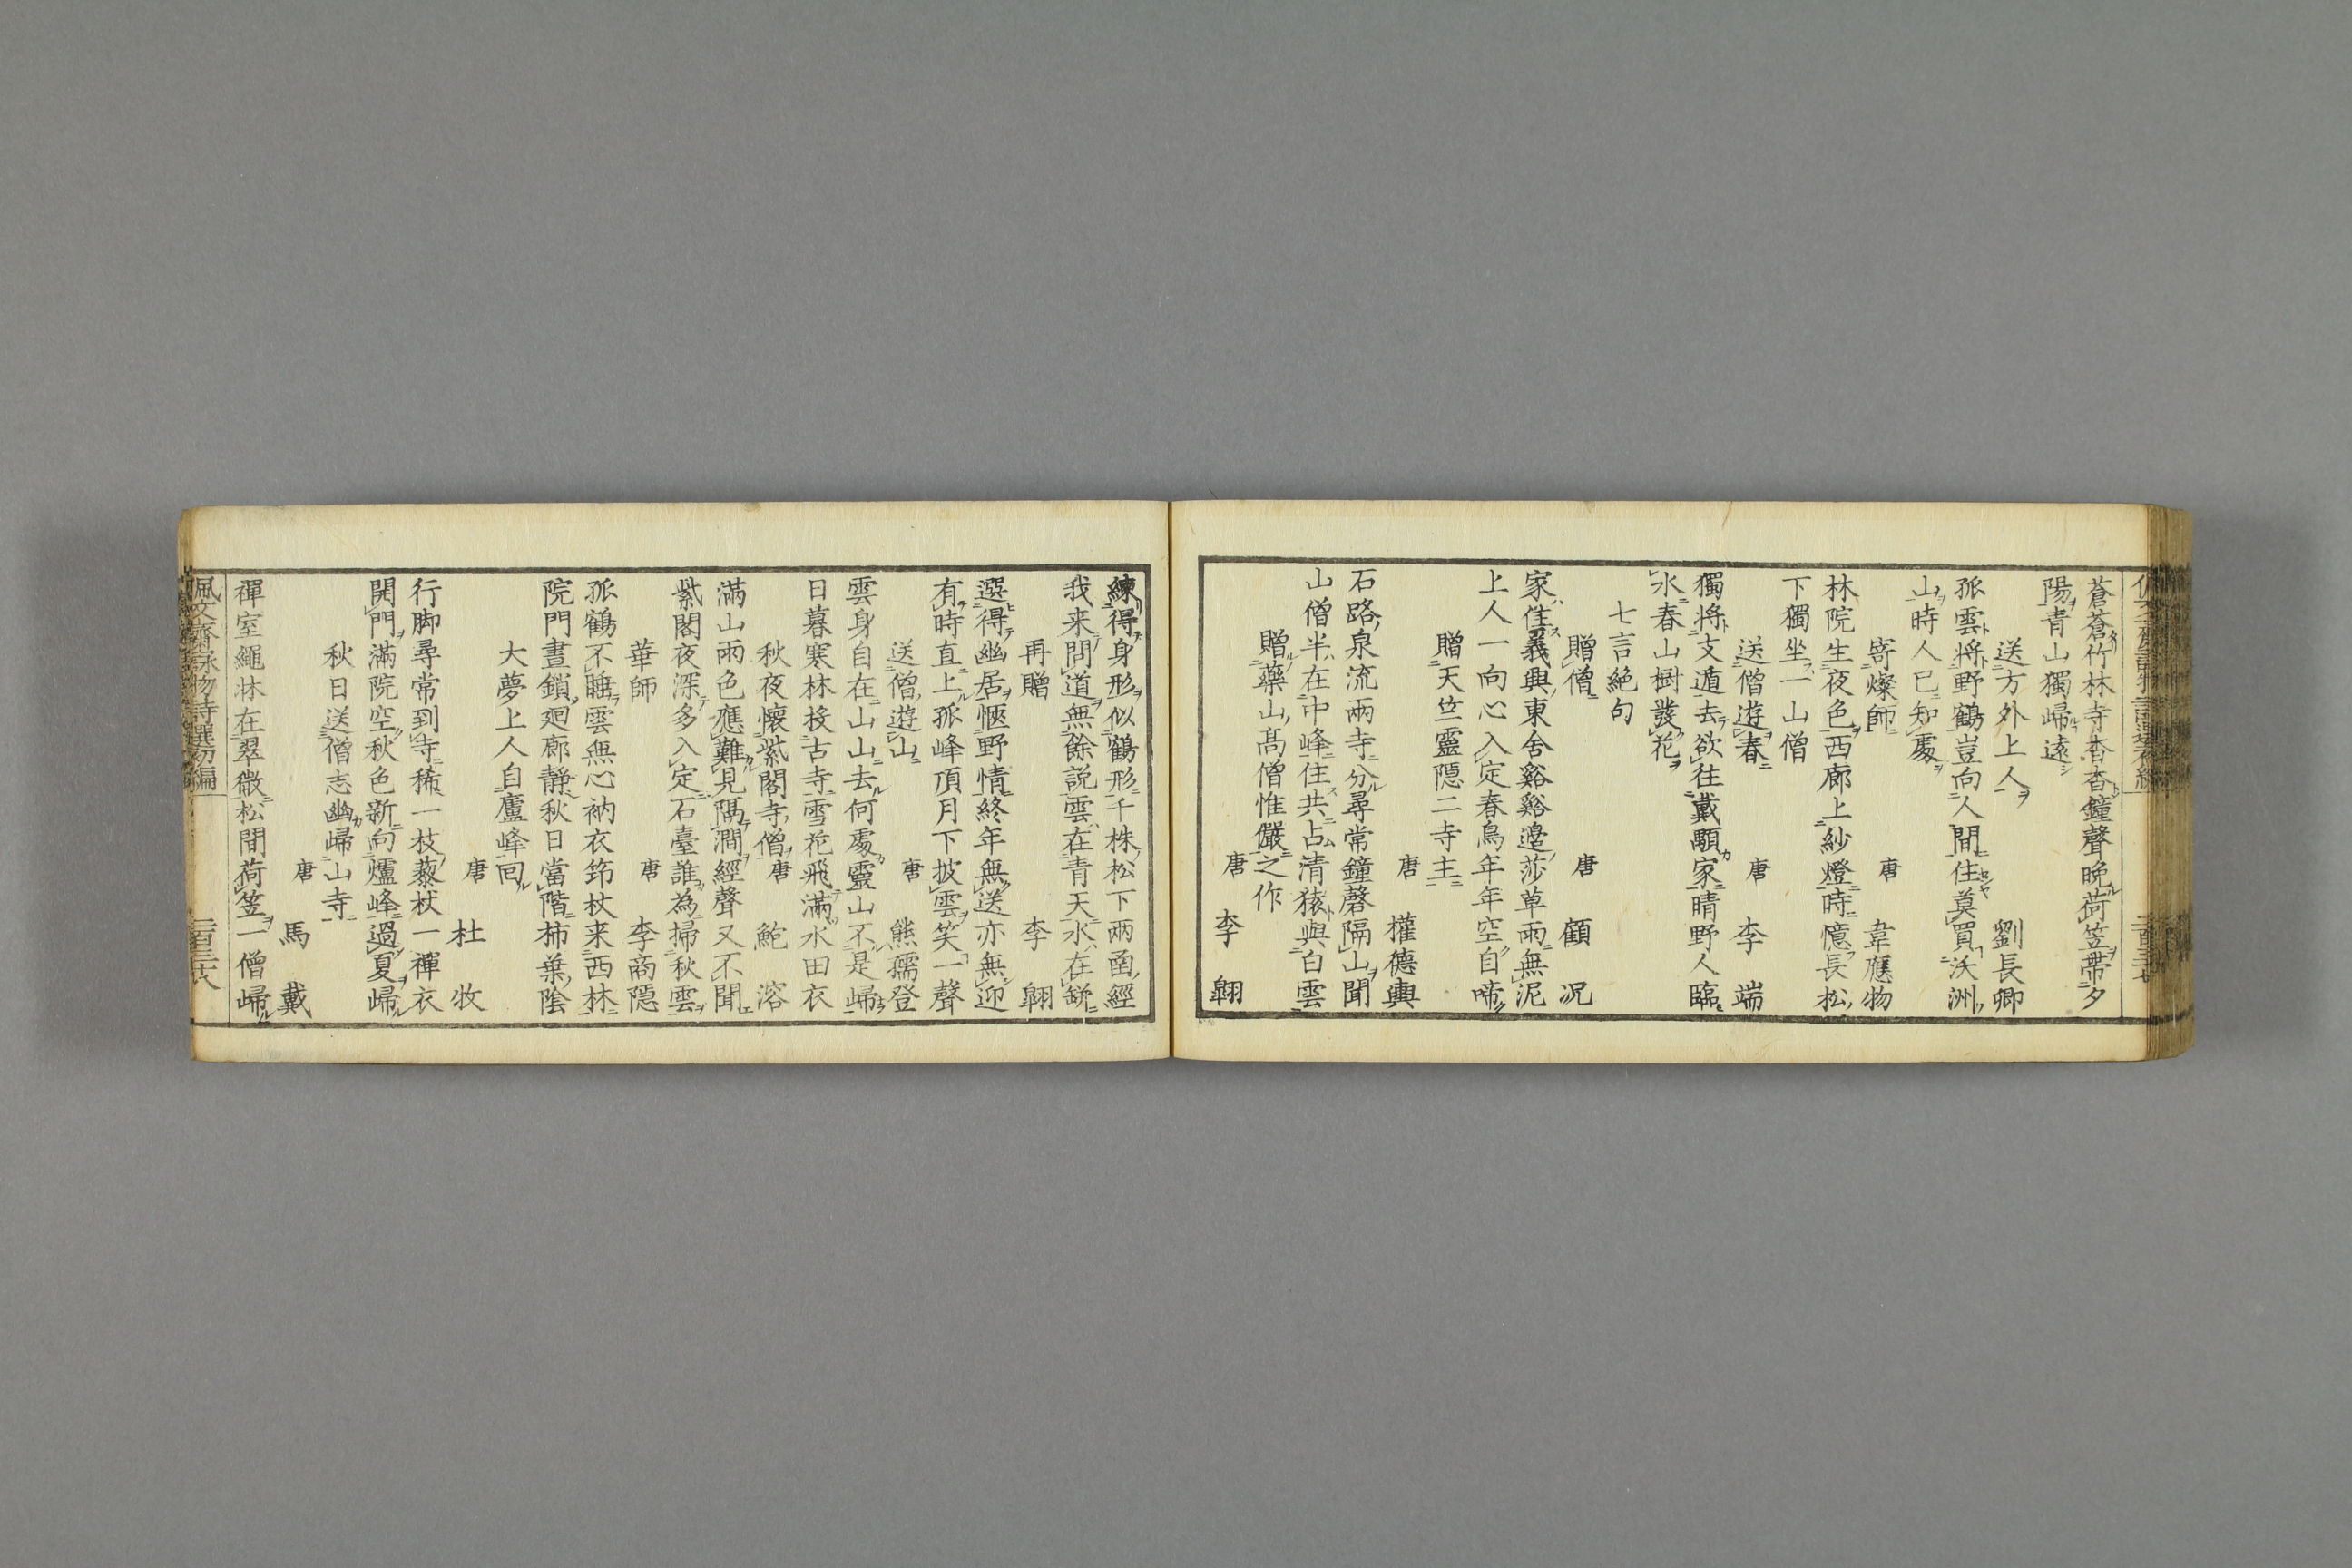 蒼蒼竹林寺杳杳鐘聲晩荷笠帶夕
陽青山獨歸遠
送方外上人 劉長卿
孤雲将野鶴豈向人間住莫買沃洲
山時人已知處
寄燦師 唐 韋應物
林院生夜色西廊上紗燈時憶長松
下獨坐一山僧
送僧遊春 唐 李端
獨將支遁去欲往戴顒家晴野人臨
水春山樹發花
七言絶句
贈僧 唐 顧况
家住義興東舍谿谿邉莎草雨無泥
上人一向心入定春鳥年年空自啼
贈天竺靈隠二寺主
唐 權德輿
石路泉流兩寺分尋常鐘磬隔山聞
山僧半在中峰住共占清猿與白雲
贈藥山髙僧惟儼之作
唐 李翺
練得身形似鶴形千株松下兩函經
我来問道無餘説雲在青天水在缾
再贈 李翺
選得幽居愜野情終年無送亦無迎
有時直上孤峰頂月下披雲笑一聲
送僧遊山 唐 熊孺登
雲身自在山山去何處靈山不是歸
日暮寒林投古寺雪花飛滿水田衣
秋夜懐紫閣寺僧 唐 鮑溶
滿山雨色應難見隔澗經聲又不聞
紫閣夜深多入定石臺誰為掃秋雲
華師 唐 李商隠
孤鶴不睡雲無心衲衣筇杖来西林
院門晝鎖廻廊静秋日當階柿葉陰
大夢上人自廬峰回
唐 杜牧
行脚尋常到寺稀一枝藜杖一禪衣
開門滿院空秋色新向爐峰過夏歸
秋日送僧志幽歸山寺
唐 馬戴
禪室繩牀在翠微松間荷笠一僧歸
佩文齋詠物詩選初編
二百三十八